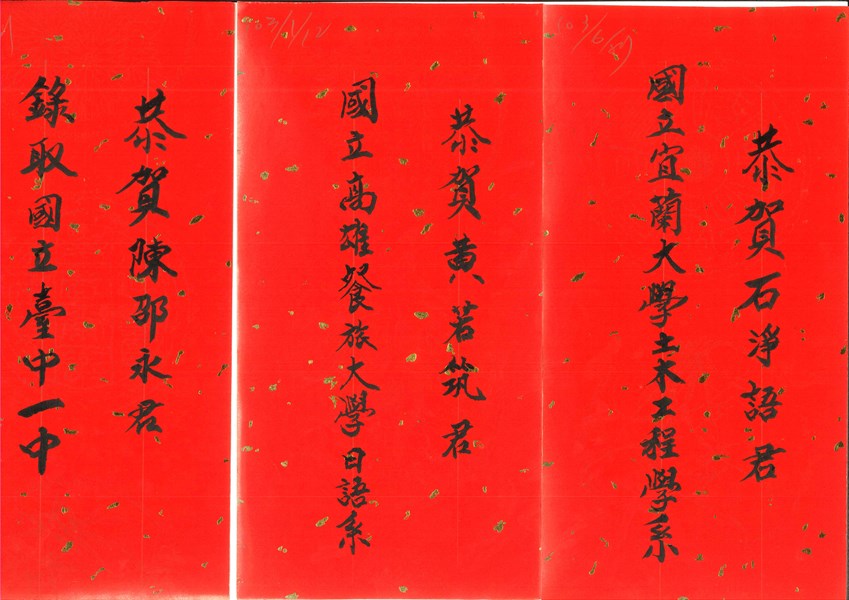 恭賀石淨語君
國立宜蘭大學土木工程學系
恭賀黃若筑君
國立高雄餐旅大學日語系
恭賀陳邵永君
錄取國立臺中一中
103/1/12